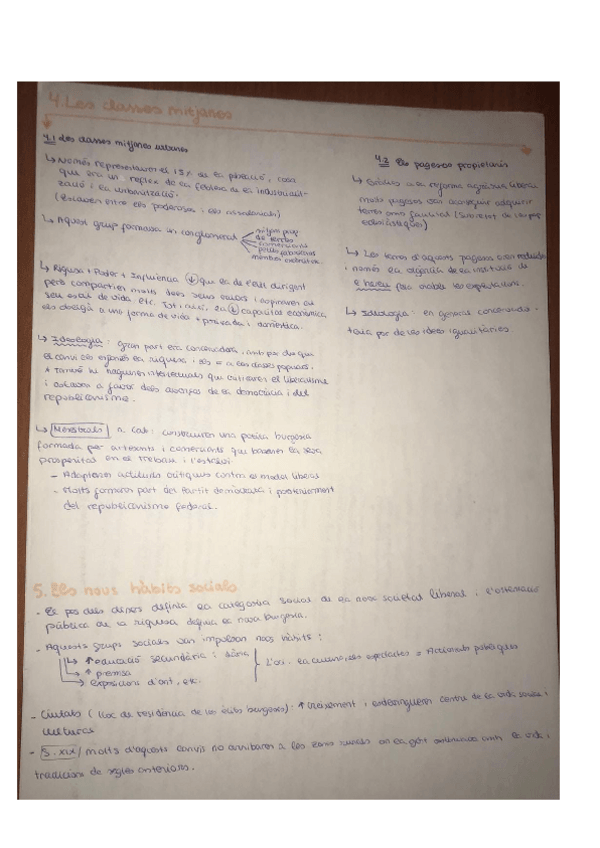 4. Les classes mitjanes
4.1 Les classes mitjanes urbanes
↳ Només representaven el 15% de la població, cosa
que era un reflex de la feblesa de la industrialit-
zació i la urbanització.
(estaven entre els poderosos i els
↳ Aquest grup formava un conglomerat
mitjans prop.
de terres
comerciants
petits fabricants
membres
↳ Riquesa + Poder + Influència ↓ que la de l'elit dirigent
però compartien molts dels seus valors i aspiraven al
seu estil de vida etc. Tot i així, la ↓ capacitat econòmica
els obligà a una forma de vida + i domèstica.
↳ Ideologia: Gran part era conservadora, amb por de que
els canvis els la riquesa, els = a les classes populars.
* També hi hagueren intel·lectuals que el liberalisme
i estaven a favor dels avanços de la democràcia i del
republicanisme.
↳ Menestrals n. Cat: constituïren una petita burgesia
formada per artesans i comerciants que basaven la seva
prosperitat en el treball i l'estalvi.
- Adoptaren actituds crítiques contra el model liberal
- Molts formaren part del Partit demòcrata i posteriorment
del republicanisme federal.
4.2 Els pagesos propietaris
↳ Gràcies a la reforma agrària liberal
molts pagesos van aconseguir adquirir
terres
eclesiàstiques)
↳ Les terres d'aquests pagesos eren reduïdes
i només la vigència de la institució de
l'hereu feia viables les explotacions.
↳ Ideologia: en general conservado-
ra per por de les idees igualitàries.
5. Els nous hàbits socials
- El pes dels diners definia la categoria social de la nova societat liberal i l'ostentació
pública de la riquesa definia la nova burgesia.
- Aquests grups socials van impulsar nous hàbits:
↳ ↑ educació secundària:
↳ ↑ premsa
↳ exposicions d'art, etc.
L'oci, la cultura, els espectacles = Activitats públiques
- Ciutats (lloc de residència de les elits burgeses): ↑ creixement i esdevingueren centre de la vida social i
cultural
- S. XIX/ molts d'aquests canvis no arribaren a les zones rurals on la gent continuava amb la vida i
tradicions de segles anteriors.